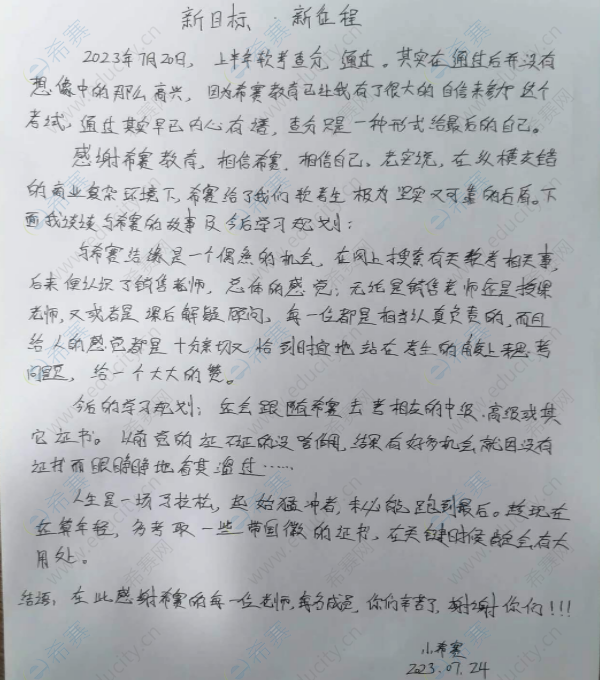 新目标·新征程
2023年7月20日，上半年软考查分，通过。其实在通过后并没有
想像中的那么高兴，因为希赛教育已让我有了很大的自信来参加这个
考试，通过其实早已内心有谱，查分只是一种形式给最后的自己。
感谢希赛教育，相信希赛，相信自己。老实说，在纵横交错
的商业复杂环境下，希赛给了我们软考生极为坚实又可靠的后盾。下
面我谈谈与希赛的故事及今后学习规划：
与希赛结缘是一个偶然的机会，在网上搜索有关软考相关事，
后来便认识了销售老师，总体的感觉：无论是销售老师还是授课
老师，又或者是课后解疑顾问，每一位都是相当认真负责的，而且
给人的感觉都是十分亲切又恰到时宜地站在考生的角度上来思考
问题，给一个大大的赞。
今后的学习规划：还会跟随希赛去考相应的中级、高级或其
它证书。以前觉的证不证的没啥用，结果有好多机会就因没有
证书而眼睁睁地看其溜过……
人生是一场马拉松，起始猛冲者，未必能跑到最后。趁现在
还算年轻，多考取一些带国徽的证书，在关键时候能会有大
用处。
结语：在此感谢希赛的每一位老师，每名成员，你们辛苦了，谢谢你们!!!
小希赛
2023.07.24
希赛网
www.educity.cn